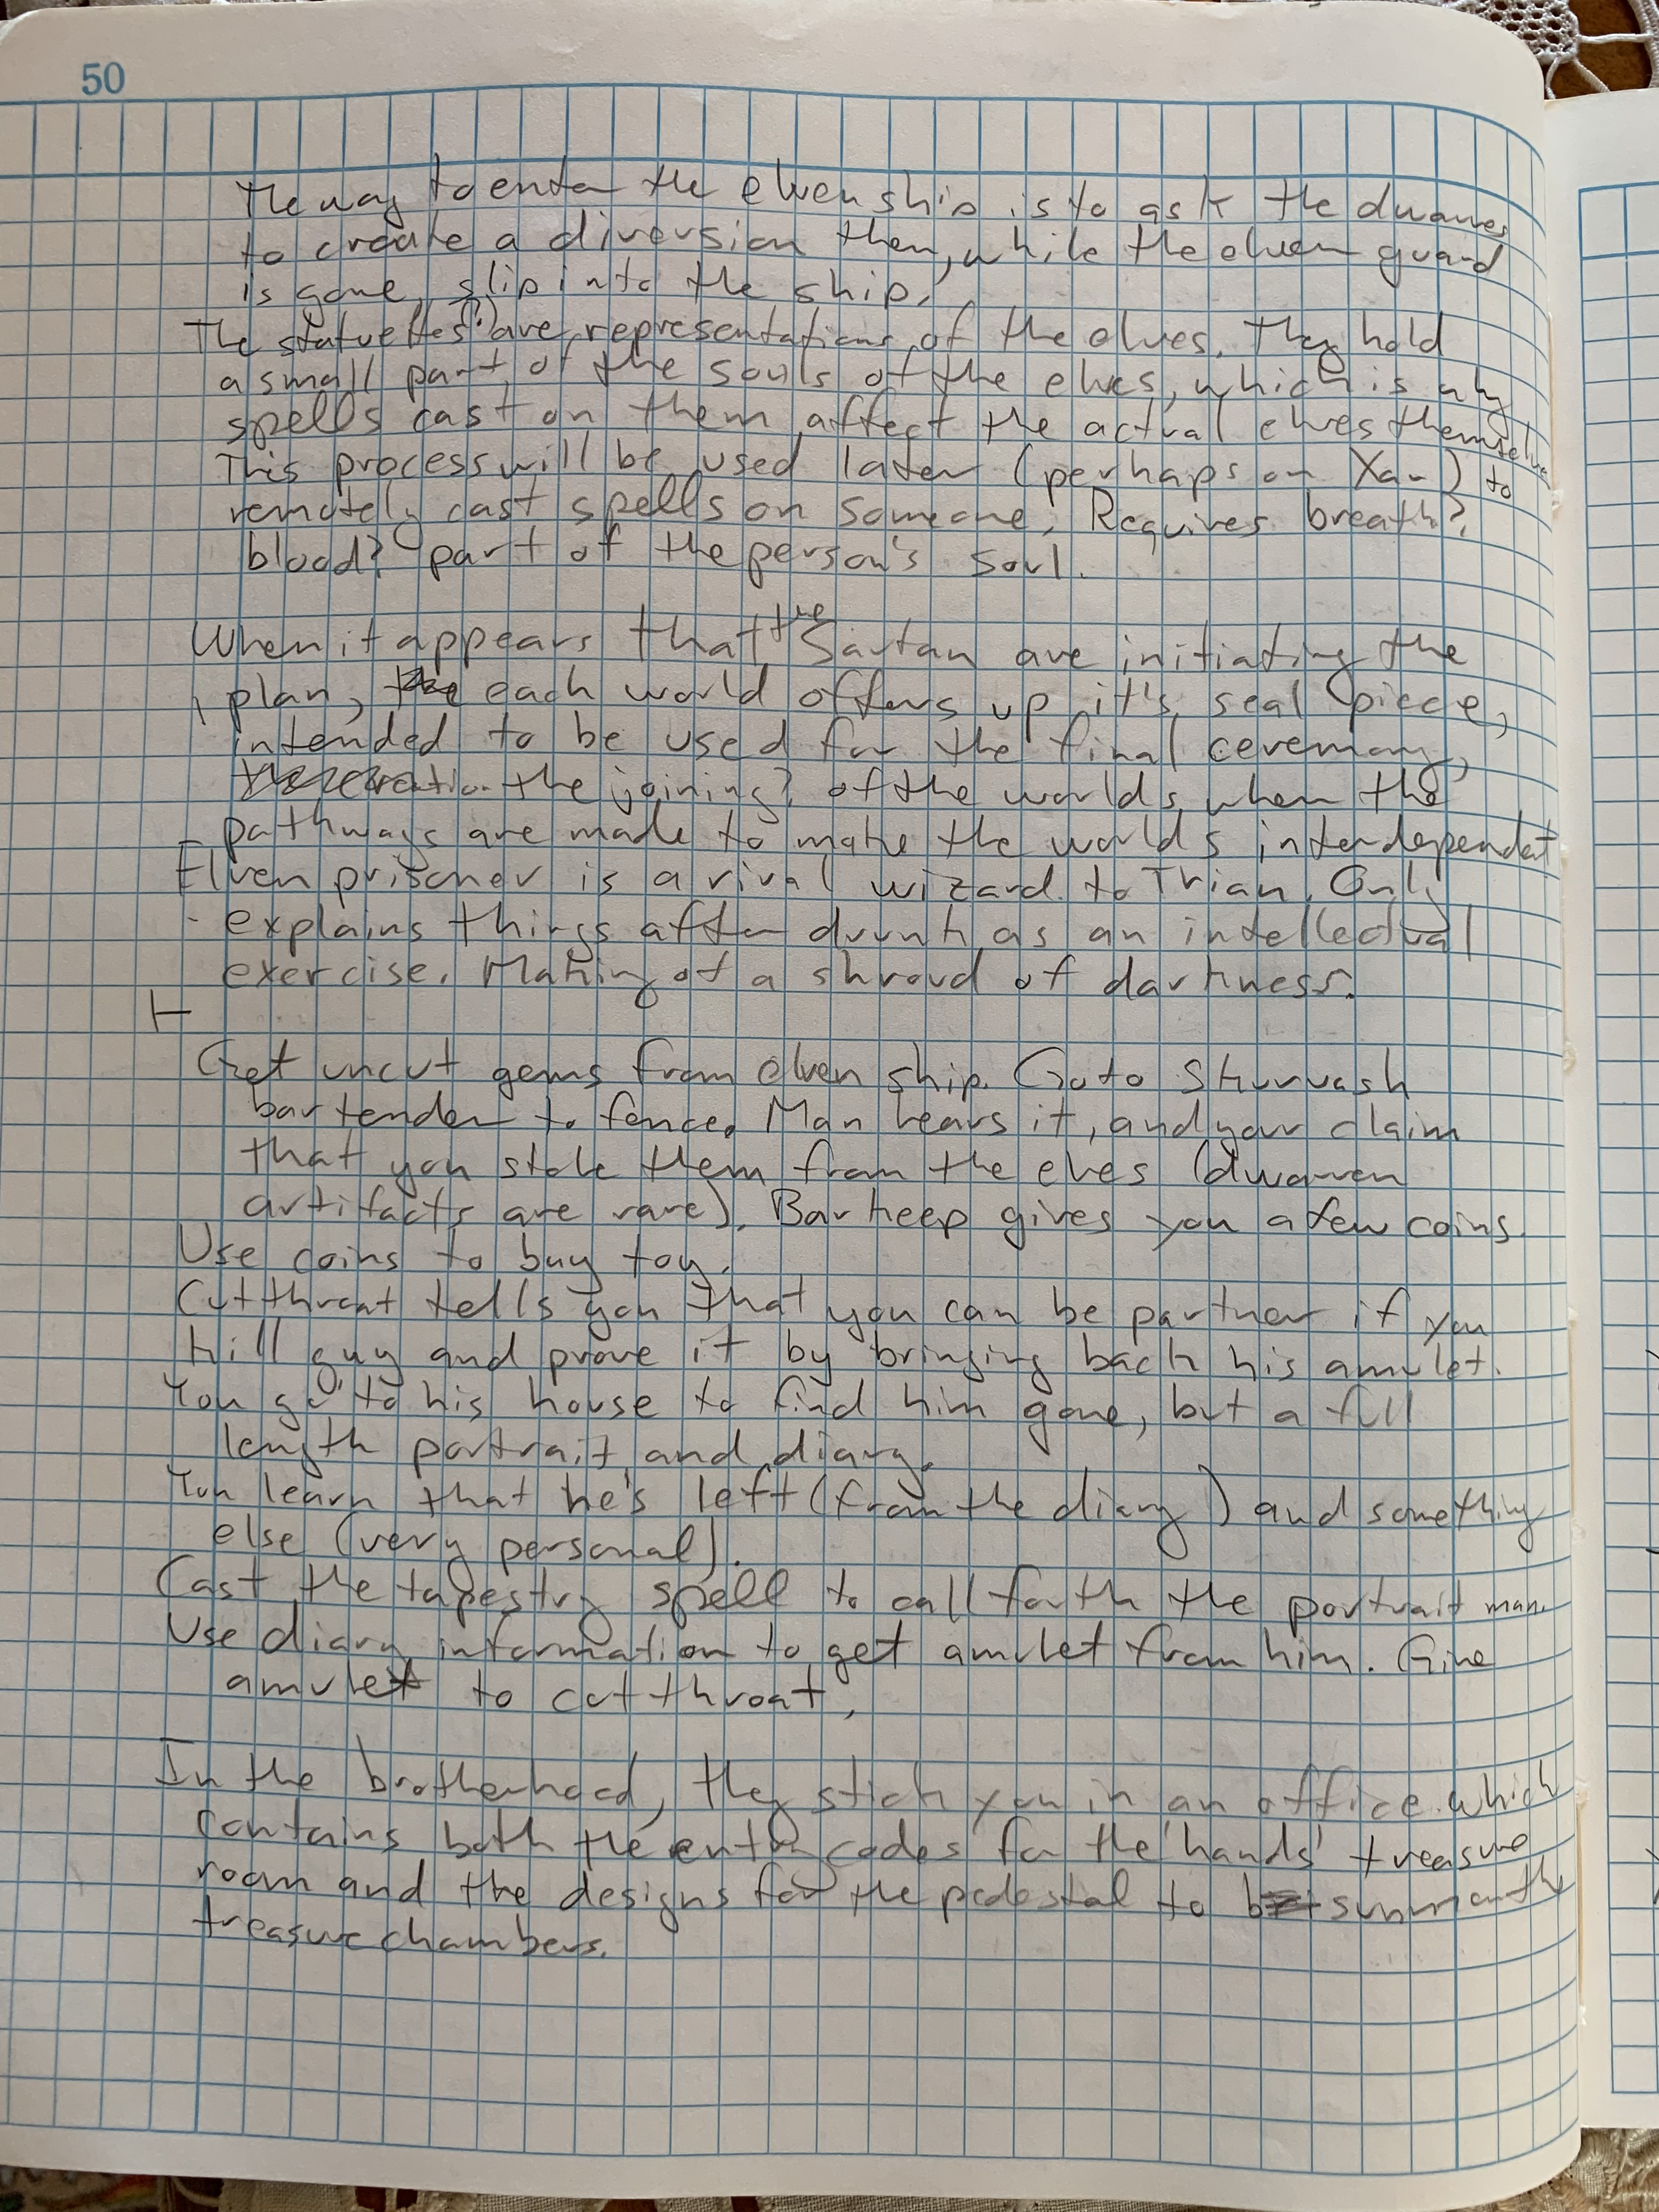 50
The way to enter the elven ship is to ask the dwarves
to create a diversion then, while the elven guard
is gone, slip into the ship.
The statuettes(?) are representations of the elves. They hold
a small part of the souls of the elves, which is why
spells cast on them affect the actual elves themselves
This process will be used later (perhaps on Xar) to
remotely cast spells on someone. Requires breath?,
blood? part of the person's soul.
When it appears that the Sartan are initiating the
plan, each world offers up it's seal piece,
intended to be used for the final ceremony,
the joining? of the worlds, when the
pathways are made to make the worlds interdependent
Elven prisoner is a rival wizard to Trian. Only
explains things after drunk, as an intellectual
exercise. Making of a shroud of darkness.
Get uncut gems from elven ship. Go to Skurvash
bartender to fence. Man hears it, and your claim
that you stole them from the elves (dwarven
artifacts are rare). Barkeep gives you a few coins.
Use coins to buy toy.
Cutthroat tells you that you can be partner if you
kill guy and prove it by bringing back his amulet.
You go to his house to find him gone, but a full
length portrait and diary.
You learn that he's left (from the diary) and something
else (very personal).
Cast the tapestry spell to call forth the portrait man.
Use diary information to get amulet from him. Give
amulet to cutthroat.
In the brotherhood, they stick you in an office which
contains both the entry codes for the 'hands' treasure
room and the designs for the pedestal to summon the
treasure chambers.